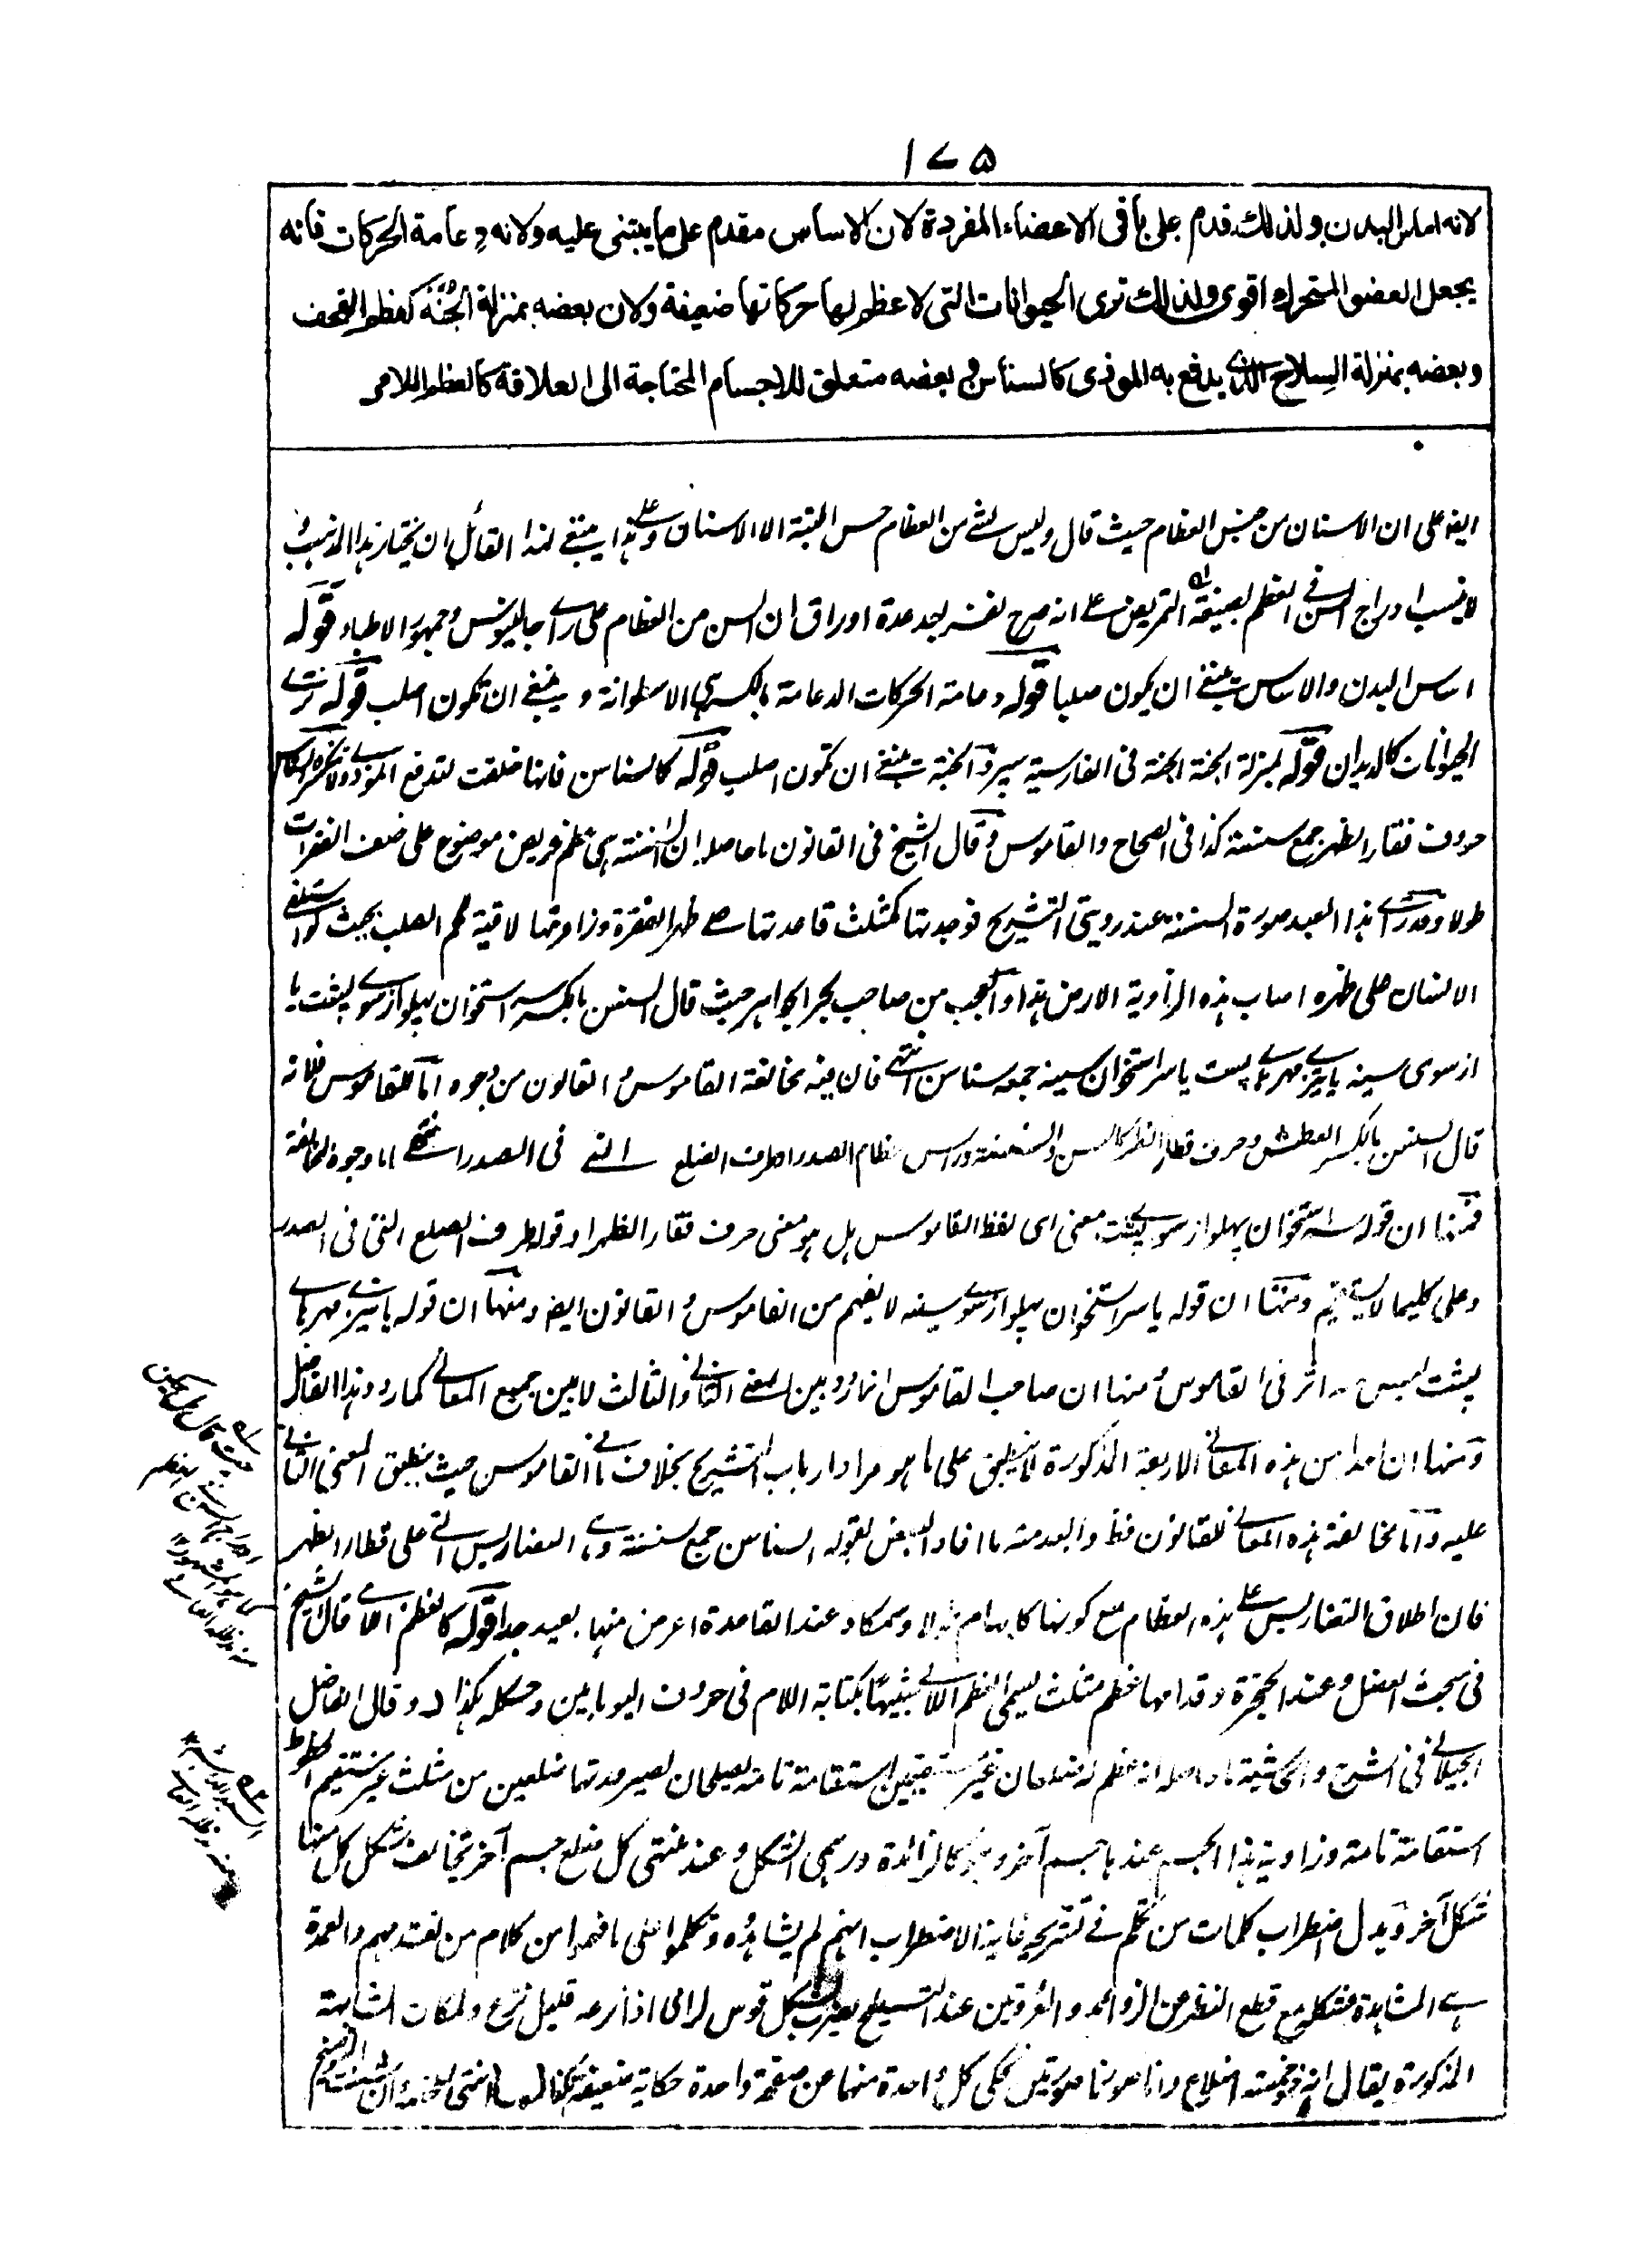 ١٧٥
لانه اساس البدن ولذلك قدم على باقى الاعضاء المفردة لان الاساس مقدم على ما يبتنى عليه ولانه دعامة الحركات فانه
يجعل العضو المتحرك اقوى ولذلك ترى الحيوانات التى لا عظم لها حركاتها ضعيفة ولان بعضه بمنزلة الجُنَّة كعظم القحف
وبعضه بمنزلة السلاح الذى يدفع به الموذى كالسناسن وبعضه متعلق للاجسام المحتاجة الى العلاقة كالعظم اللامى
ايضا على ان الاسنان من جنس العظام حيث قال وليس لشئ من العظام حس البتة الا الاسنان وعلى هذا ينبغى لهذا القائل ان يختار هذا المذهب و
لا ينسب ادراج السن فى العظم بصيغة التمريض على انه صرح نفسه بعد عدة اوراق ان السن من العظام على راى جالينوس وجمهور الاطباء قوله
اساس البدن والاساس ينبغى ان يكون صلبا قوله دعامة الحركات الدعامة بالكسر هى الاسطوانة وينبغى ان تكون اصلب قوله ترى
الحيوانات كالديدان قوله بمنزلة الجنة الجنة فى الفارسية سپر والجنة ينبغى ان تكون اصلب قوله كالسناسن فانها خلقت لتدفع الموذى
حروف فقار الظهر جمع سنسنة كذا فى الصحاح والقاموس وقال الشيخ فى القانون ما حاصله ان السنسنة هى عظم عريض موضوع على ضعف الفقرات
طولا وقد راى هذا العبد صورة السنسنة عند رويتى التشريح فوجدتها كمثلث قاعدتها على ظهر الفقرة وزاويتها لاقية لحم الصلب بحيث لو استلقى
الانسان على ظهره اصاب هذه الزاوية الارض هذا والعجب من صاحب بحر الجواهر حيث قال السنسن بالكسر استخوان پهلو از سوى پشت يا
از سوى سينه يا تيزى مهرهاى پشت يا سر استخوان سينه جمعه سناسن انتهى فان فيه مخالفة القاموس والقانون من وجوه اما للقاموس فلانه
قال السنسن بالكسر العطش وحرف فقار الظهر كالسن والسنسنة وراس عظام الصدر او طرف الضلع التى فى الصدر انتهى اما وجوه المخالفة
فمنها ان قوله استخوان پهلو از سوى پشت معنى اى لفظ القاموس هل هو معنى حرف فقار الظهر او قوله طرف الضلع التى فى الصدر
وعلى كليهما لا يستقيم ومنها ان قوله يا سر استخوان پهلو از سوى سينه لا يفهم من القاموس والقانون ايضا ومنها ان قوله يا تيزى مهرهاى
پشت ليس له اثر فى القاموس ومنها ان صاحب القاموس انما ردد بين المعنى الثانى والثالث لا بين جميع المعانى كما ردد هذا الفاضل
ومنها ان احدا من هذه المعانى الاربعة المذكورة لا ينطبق على ما هو مراد ارباب التشريح بخلاف ما فى القاموس حيث ينطبق المعنى الثانى
عليه واما مخالفة هذه المعانى للقانون فظ وابعد منه ما افاد البعض بقوله السناسن جمع سنسنة وهى الغضاريس التى على قطار الظهر
فان اطلاق الغضاريس على هذه العظام مع كونها كابهام طولا وسمكا وعند القاعدة اعرض منها بعيد جدا قوله كالعظم اللامى قال الشيخ
فى مبحث العضل وعند الحنجرة وقدامها عظم مثلث يسمى العظم اللامى تشبيها بكتابة اللام فى حروف اليونانيين وشكله هكذا وقال الفاضل
الجيلانى فى الشرح والحاشية ما حاصله انه عظم له ضلعان غير مستقيمين استقامة تامة يصلحان لصيرورتهما ضلعين من مثلث غير مستقيم الخطوط
استقامة تامة وزاوية هذا الجسم عندها جسم آخر وهو كالزائدة ورمحى الشكل وعند منتهى كل ضلع جسم آخر يخالف شكل كل منها
شكل آخر ويدل اضطراب كلمات من تكلم فى تشريحه غاية الاضطراب انهم لم يشاهدوه وتكلموا على ما فهموا من كلام من تقدمهم والعمدة
هى المشاهدة فشكله مع قطع النظر عن الزوائد والغروتين عند التسليح يضرب بشكل قوس لرامى اذا نزعه قليل نزع ولمكان المشابهة
المذكورة يقال انه ذو خمسة اضلاع وانا صورنا صورتين تحكى كل واحدة منهما عن صفحة واحدة حكاية ضعيفة